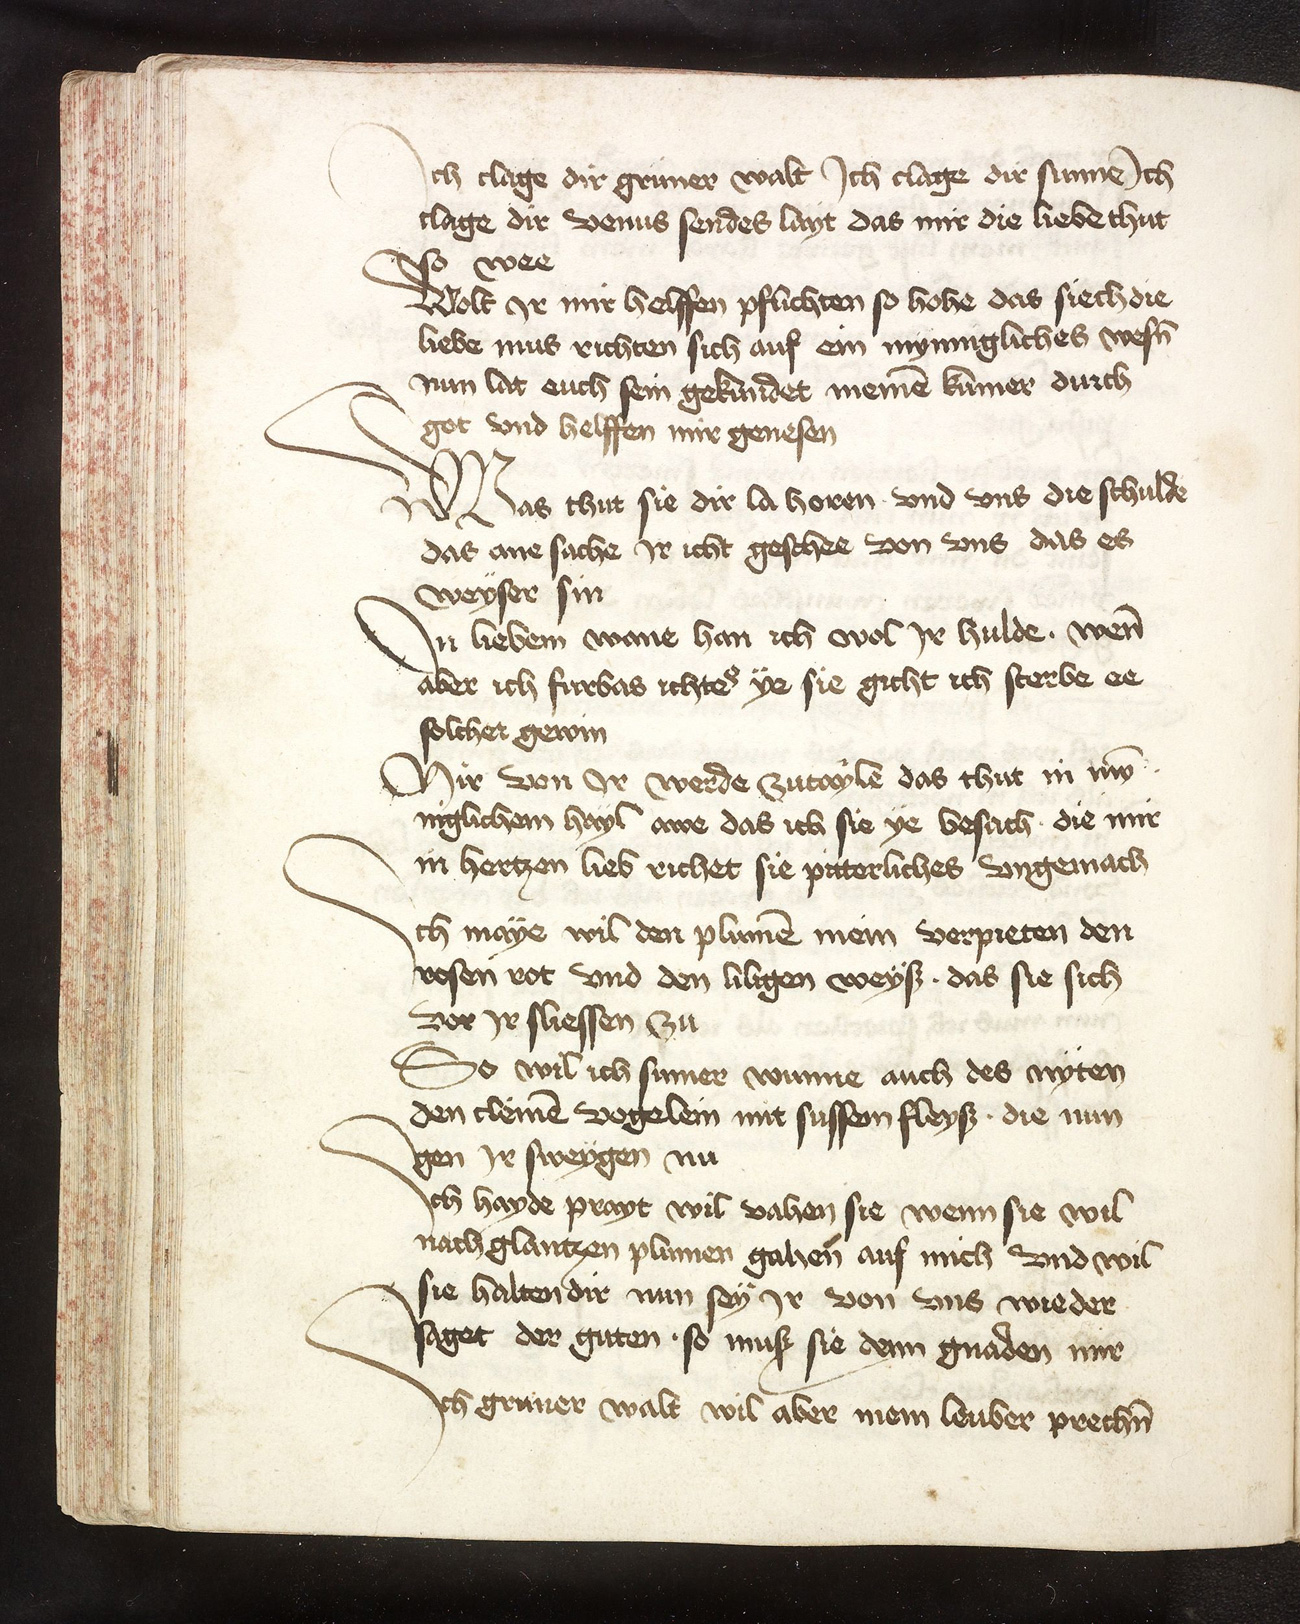 Ich clage dir gruner walt Ich clage dir sunne Ich
clage dir venus sendes layt das mir die liebe thut
so wee
Wolt Ir mir helffen pflichten so hohe das siech die
liebe mus richten sich auf ein mynnigliches wesn̄
nun lat euch sein gekundet meinē kumer durch
got vnd helffen mir genesen
Was thut sie dir la horen · vnd vns die schulde
das ane sache Ir icht geschee von vns das es
weyser sin
In liebem wane han ich wol Ir hulde · wen̄
aber ich furbas ichtes ÿe sie gicht ich sterbe ee
solcher gewin
Mir von Ir werde zutaÿle das thut in mÿn
niglichem hayl awe das ich sie ÿe besach · die mir
in hertzen lieb richet sie pitterliches vngemach
Ich maÿe wil den plumē mein verpieten den
rosen rot vnd den liligen weÿß · das sie sich
vor Ir sliessen zu
So wil ich sumer wunne auch des nÿten
den cleinē vogelein mit sussem fleyß · die nun
gen Ir sweÿgen nu
Ich hayde prayt wil vahen sie wenn sie wil
nach glantzen plumen gahen̄ auf mich vnd wil
sie halten dir nun seÿ Ir von vns wieder
saget der guten · so muß sie denn gnaden mir
Ich gruner walt wil aber mein leuber prechn̄